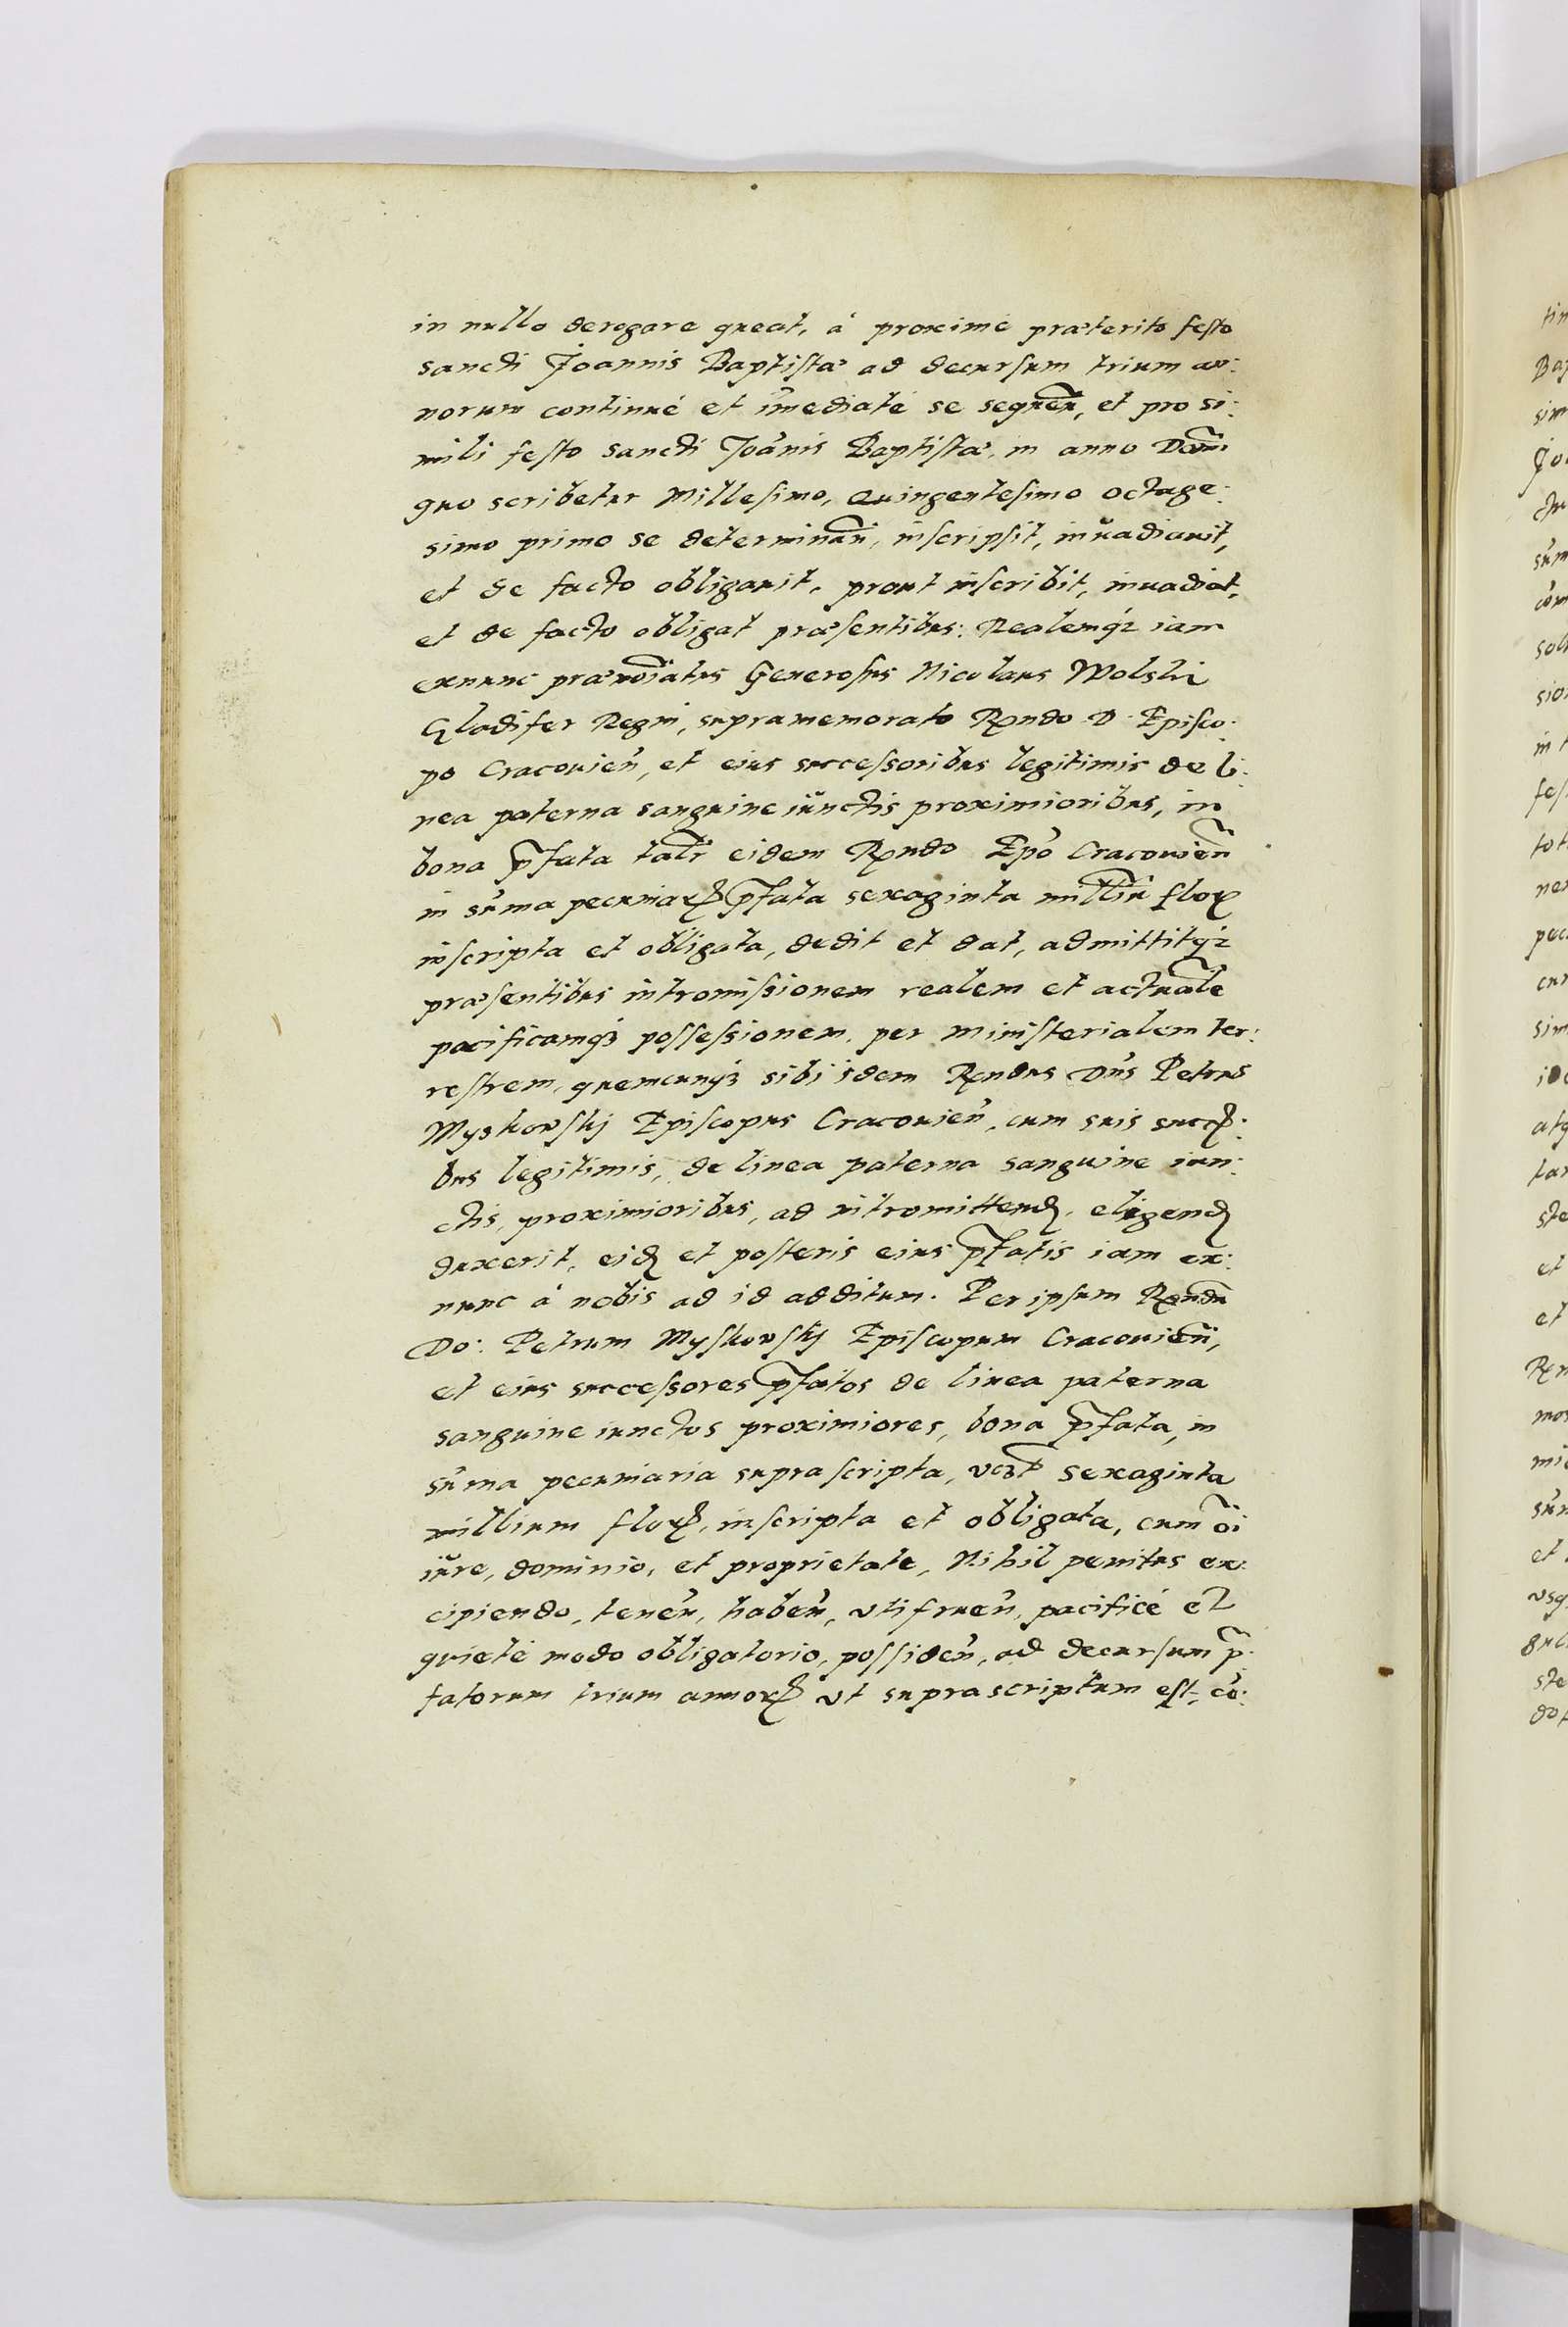 in nullo derogare queat, à proximè præterito festo
sancti Joannis Baptistæ ad decursum trium an:
norum continué et im̃ediaté se sequeñ, et pro si:
mili festo sancti Joãnis Baptistæ, in anno Dom̃i
quo scribetur Millesimo, Quingentesimo octage:
simo primo se determinañ, inscripsit, inuadiauit,
et de facto obligauit, prout inscribit, inuadiat,
et de facto obligat præsentibus: Realemq́ꝫ iam
exnunc prænoĩatus Generosus Nicolaus Wolski
Gladifer Regni, supramemorato Rẽndo D. Episco:
po Cracouieñ, et eius successoribus legitimis de li:
nea paterna sanguine iunctis proximioribus, in
bona p̃fata talr̃ eidem Rẽndo Ep̃o Cracouieñ
in sum̃a pecuniaꝝ p̃fata sexaginta milliũ floꝝ
inscripta et obligata, dedit et dat, admittitq́ꝫ
præsentibus intromissionem realem et actualẽ
pacificamq́ꝫ possessionem, per ministerialem ter:
restrem, quemcunq́ꝫ sibi idem Rẽndus Dñs Petrus
Myskowskj Episcopus Cracouieñ, cum suis succꝝ:
bus legitimis, de linea paterna sanguine iun:
ctis, proximioribus, ad intromittend, eligend
duxerit, eid et posteris eius p̃fatis iam ex:
nunc à nobis ad id additum. Per ipsum Rẽndũ
Do: Petrum Myskowskj Episcopum Cracouieñ,
et eius successores p̃fatos de linea paterna
sanguine iunctos proximiores, bona p̃fata, in
sum̃a pecuniaria suprascripta, vczt̃ sexaginta
millium floꝝ, inscripta et obligata, cum oĩ
iure, dominio, et proprietate, Nihil penitus ex:
cipiendo, teneñ, habeñ, vtifrueñ, pacificé et
quieté modo obligatorio, possideñ, ad decursum p̃:
fatorum trium annoꝝ vt suprascriptum est, cõ: